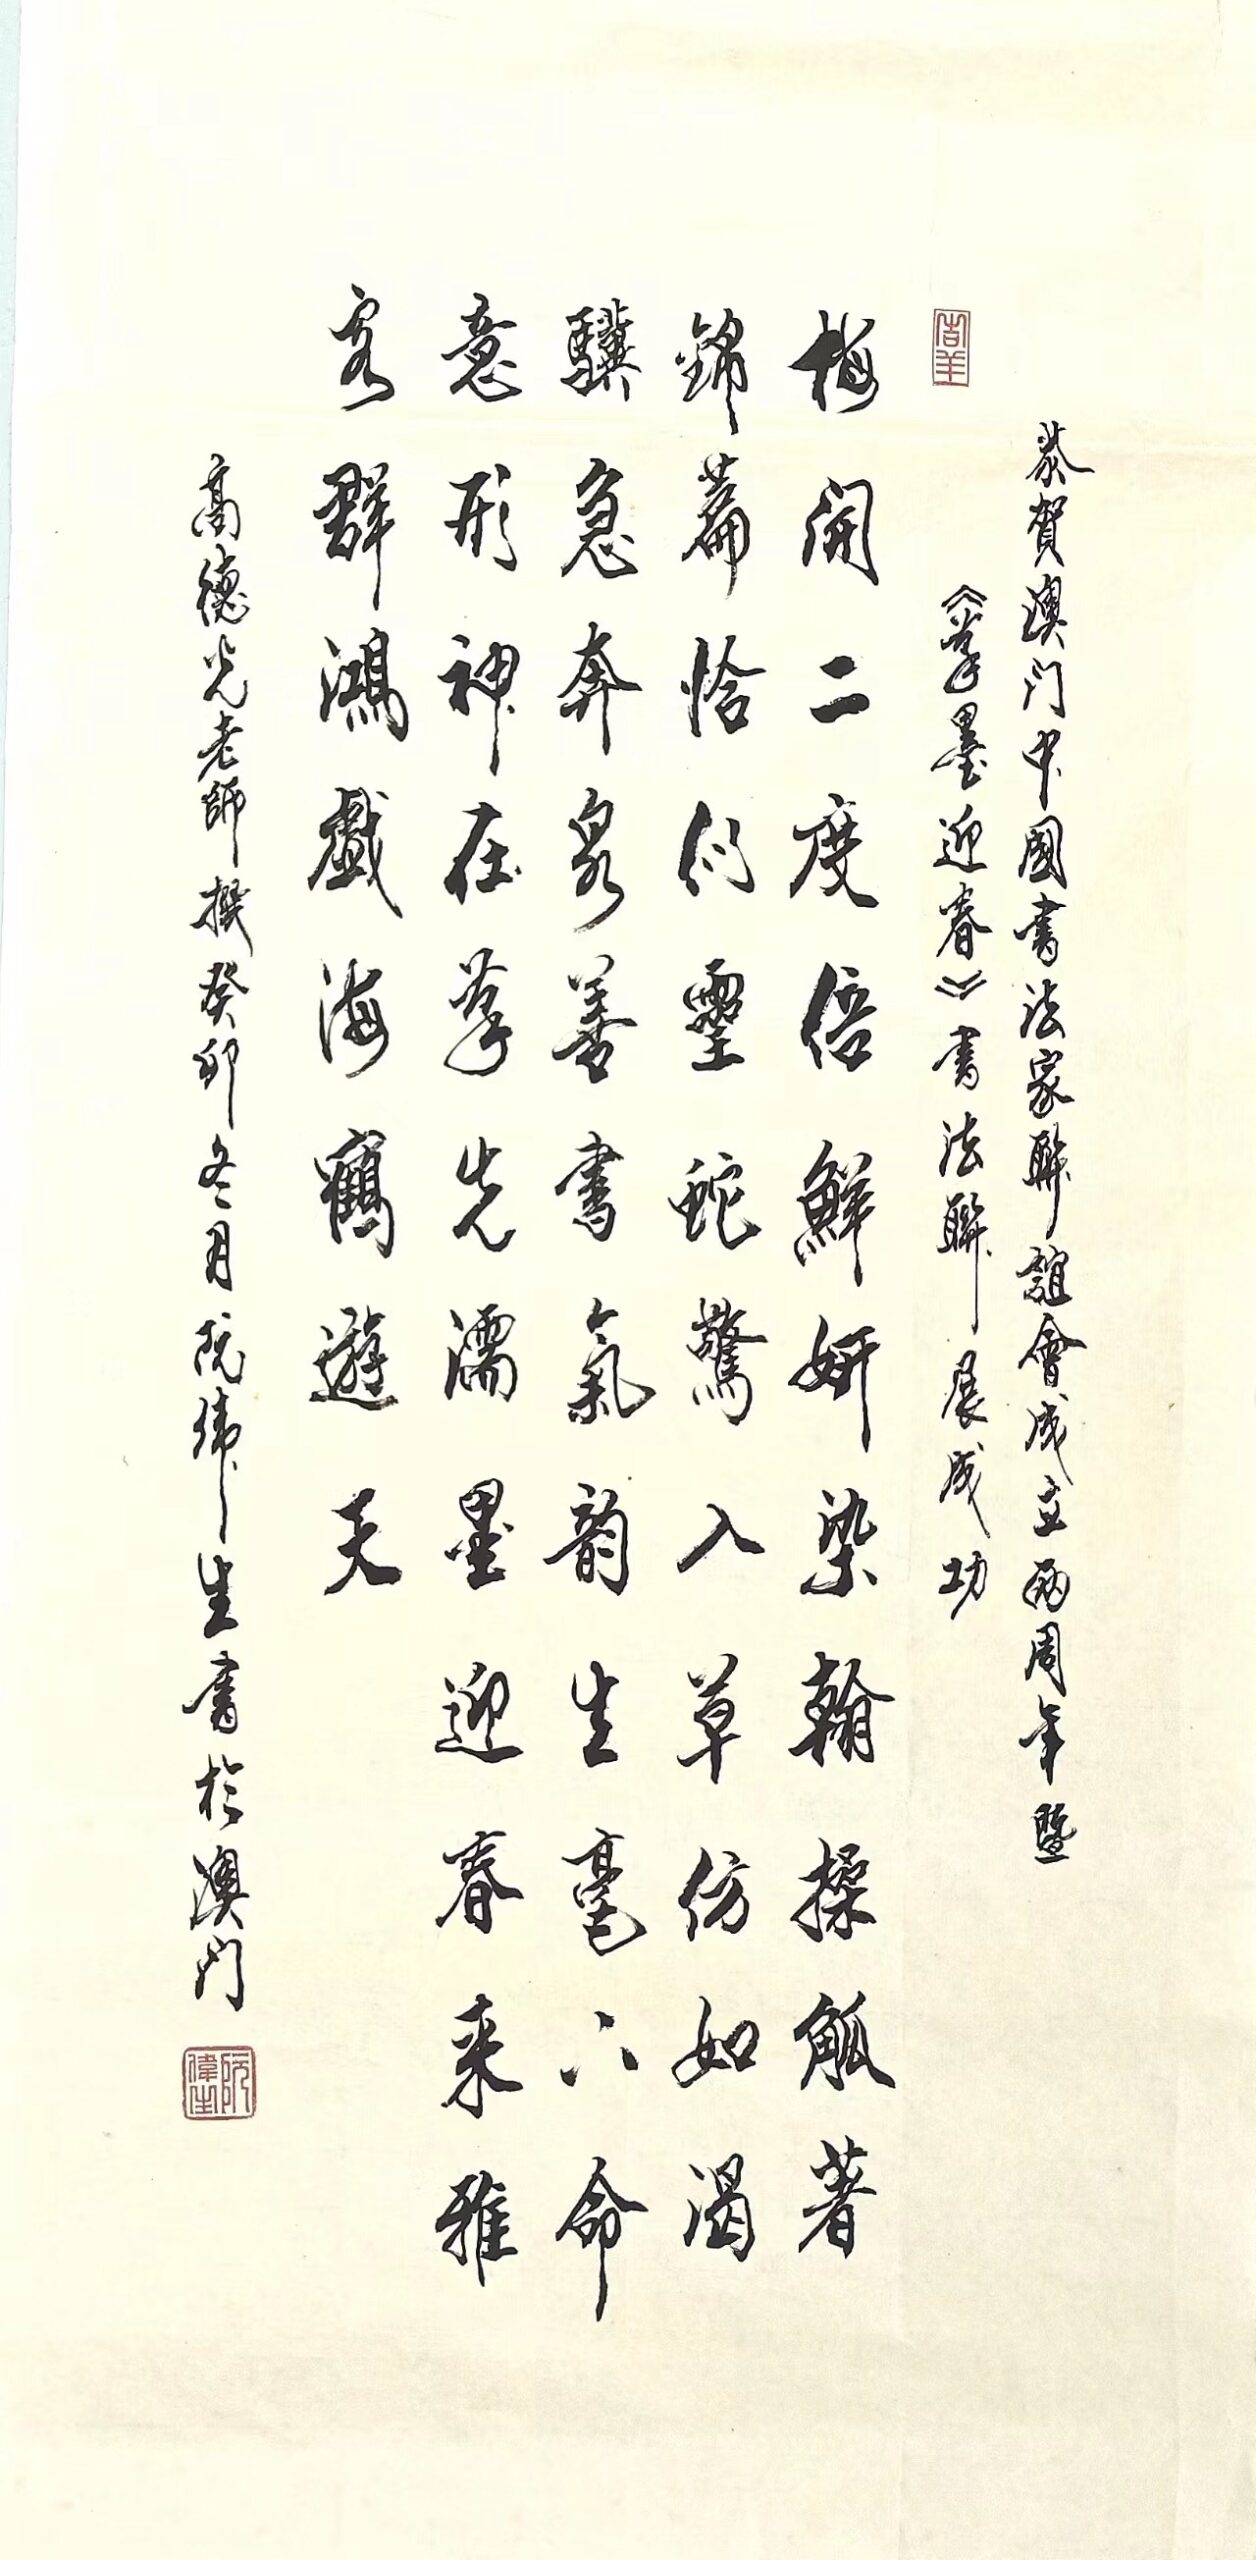 恭賀澳门中國書法家聯誼會成立兩周年暨
《莩墨迎春》書法聯展成功
梅開二度倍鮮妍染翰操觚著
錦篇恰似靈蛇驚入草仿如渴
驥急奔泉善書氣韵生毫八命
意形神在莩先濡墨迎春来雅
客群鴻戲海鶴遊天
高德光老師撰癸卯冬月阮偉生書於澳门
阮偉生